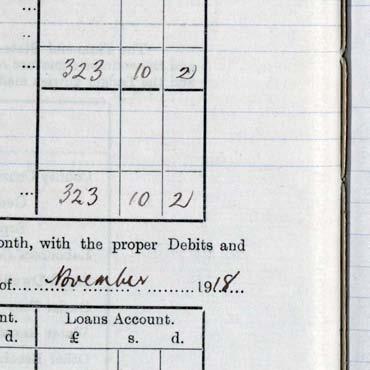 ...
..
... 323 10 2
... 323 10 2
onth, with the proper Debits and
of............November............1918....
nt. Loans Account.
d. £ s. d.